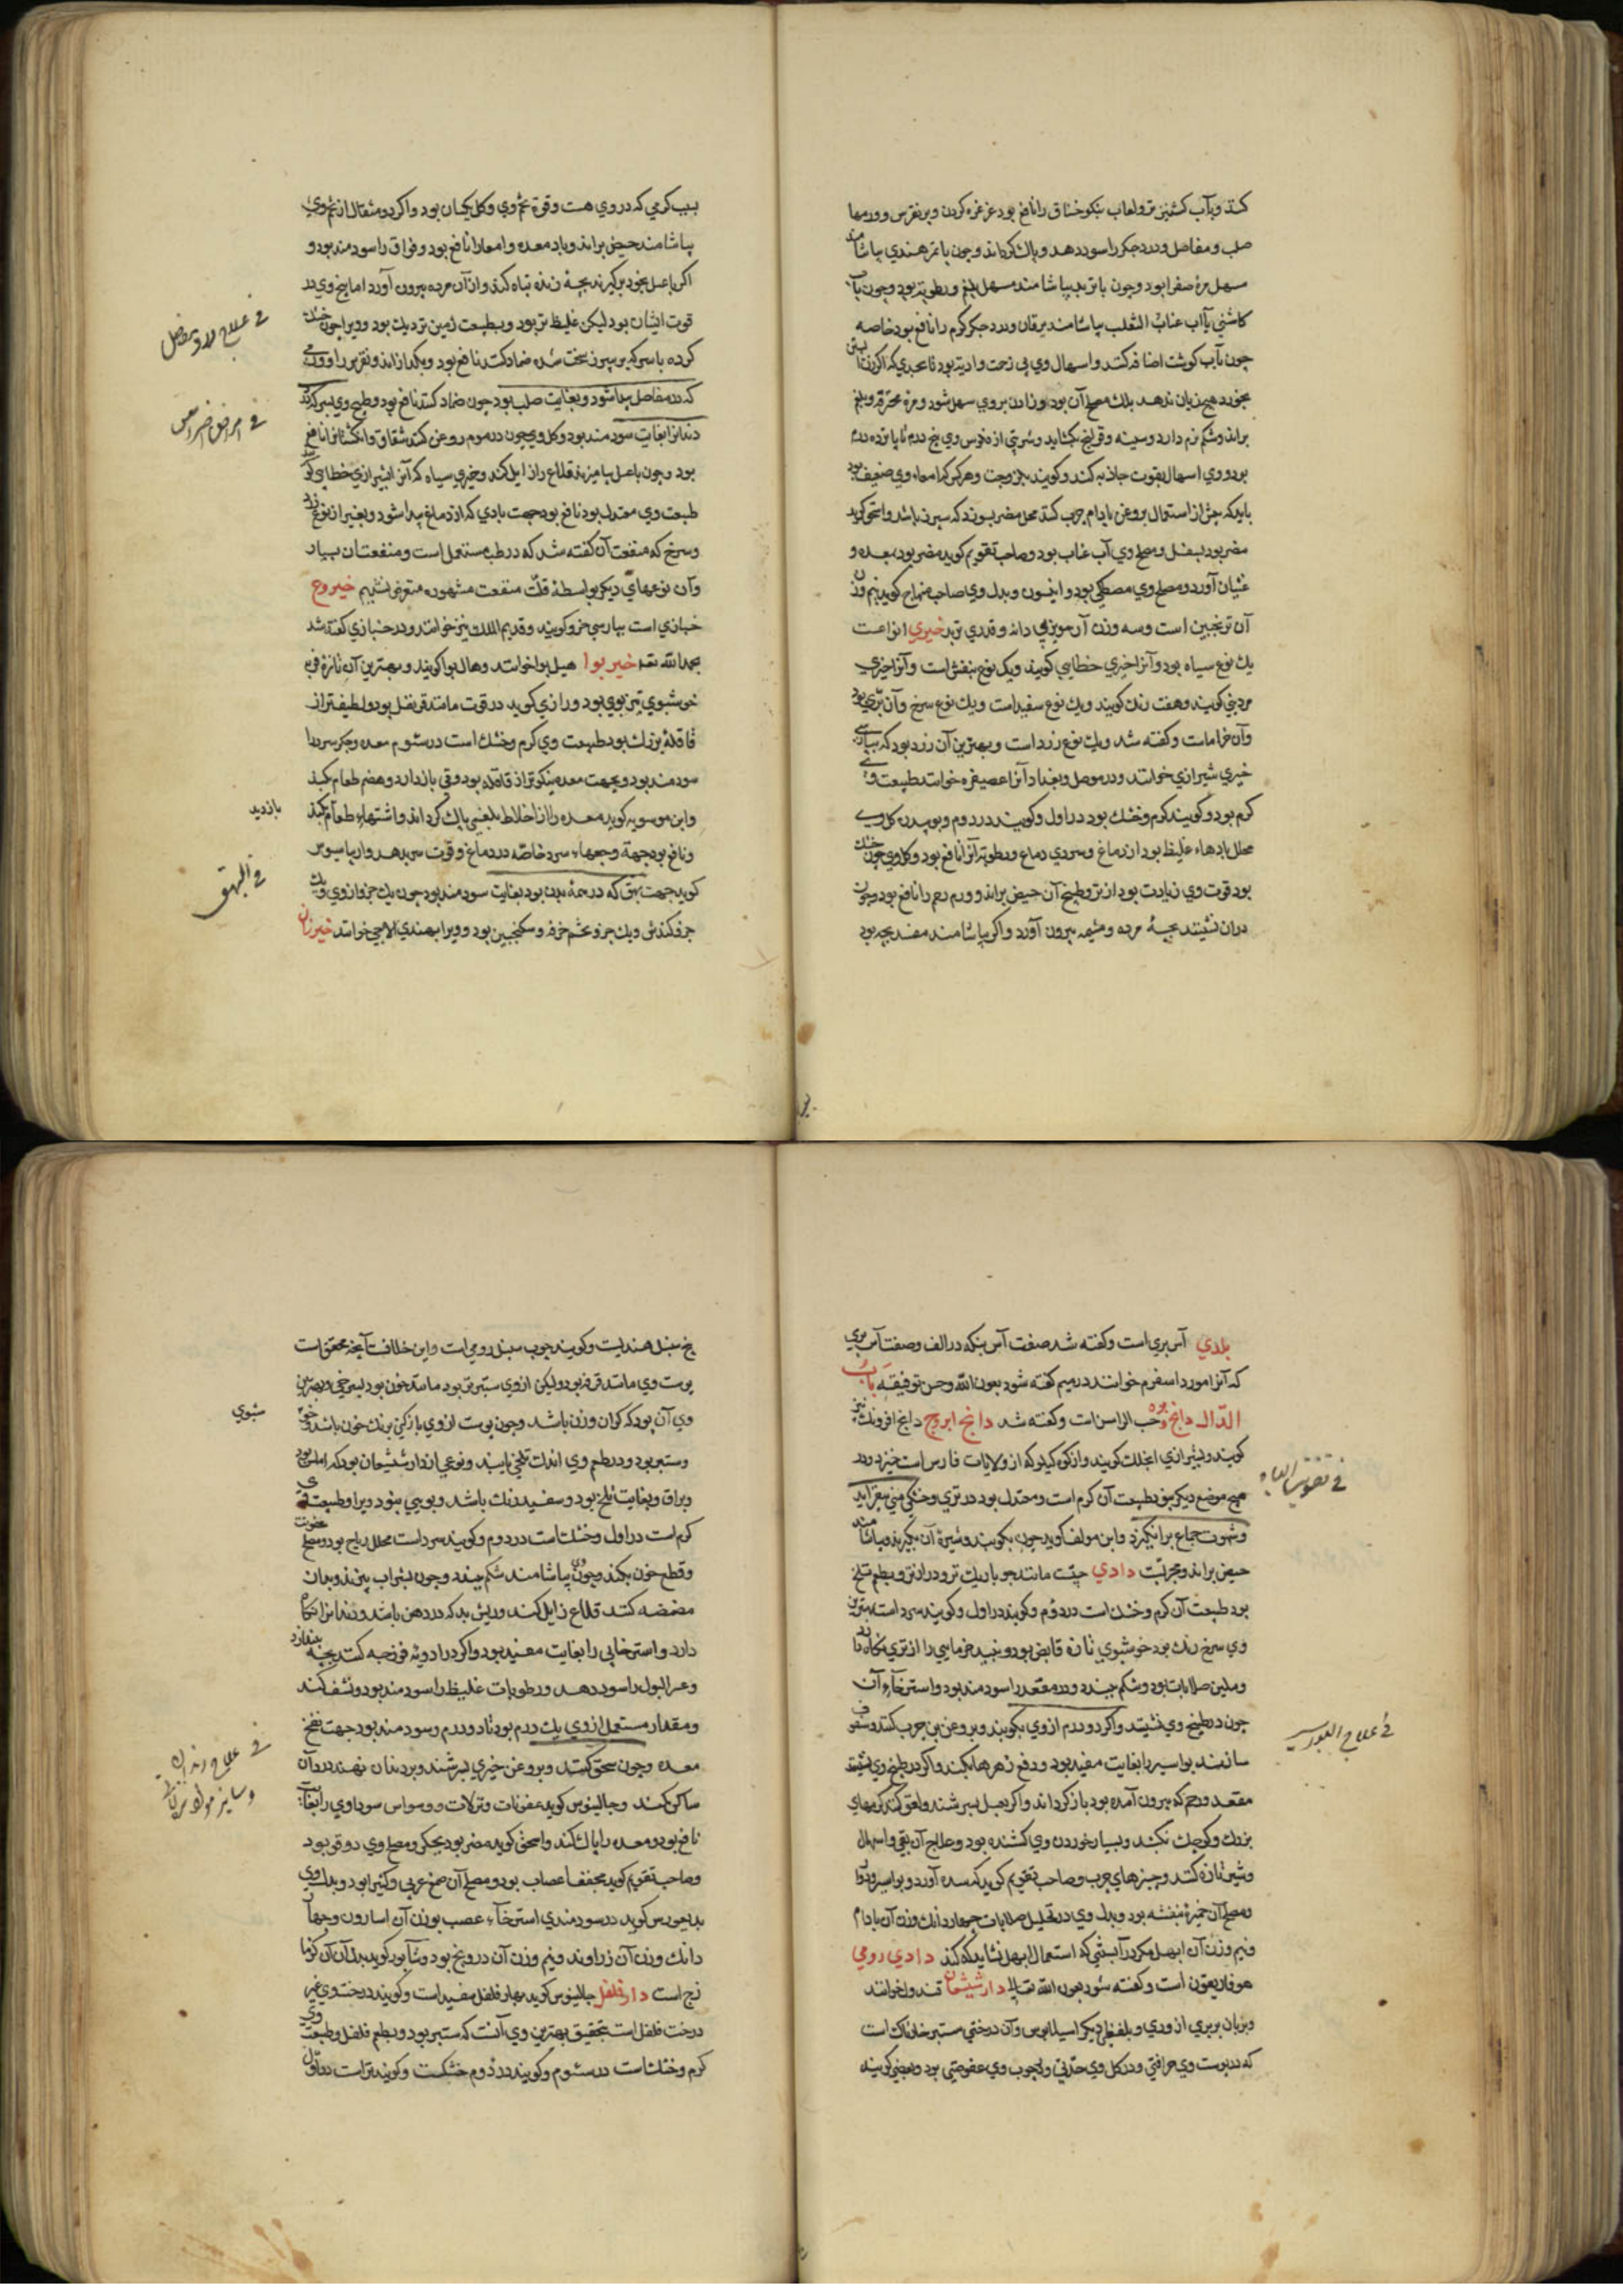 کند و بآب کشنیز تر و لعاب نیکو خناق را نافع بود غرغره کردن و بر نقرس و ورمها
صلب و مفاصل و درد جکر را سود دهد و پاک کرداند و چون با تمر هندی بیاشامند
مسهل مره صفرا بود و چون با تربد بیاشامند مسهل بلغم و رطوبت بود و چون بآب
کاشنی یا آب عنب الثعلب بیاشامند یرقان و درد جکر کرم را نافع بود خاصه
چون بآب کوشت اضافه کنند و اسهال وی بی زحمت و اذیت بود تا بحدی که اکر زن آبستن
بخورد هیچ زیان ندهد بلک مصلح آن بود و زادن بر وی سهل شود و مره محترقه و بلغم
براند و شکم نرم دارد و سینه و قولنج بکشاید و شربتی از فلوس وی پنج درم تا پانزده درم
بود و وی اسهال بقوت جاذبه کند و کویند بلزوجت و هر کس که امعاء وی ضعیف بود
باید که پیش از استعمال بروغن بادام چرب کند
مضر بود بسفل و مصلح وی آب عناب بود و صاحب تقویم کوید مضر بود بمعده و
غثیان آورد و مصلح وی مصطکی بود و انیسون و بدل وی صاحب منهاج کوید نیم وزن
آن ترنجبین است و سه وزن آن مویز بی دانه و قدری تربد خیری انواعست
یک نوع سیاه بود و آنرا خیری خطایی کویند و یک نوع بنفش است و آنرا خیری
مردینی کویند و هفت رنک کویند و یک نوع سفید است و یک نوع سرخ و آن بری بود
و آن خزامات و کفته شد و یک نوع زرد است و بهترین آن زرد بود که بپارسی
خیری شیرازی خوانند و در موصل و بغداد آنرا عصیفره خوانند طبیعت وی
کرم بود و کویند کرم و خشک بود در اول و کویند در دوم و بوییدن کل وی
محلل بادهاء غلیظ بود از دماغ و سردی دماغ و رطوبت آنرا نافع بود و کل وی چون خشک
بود قوت وی زیادت بود از تر و طبیخ آن حیض براند و ورم رحم را نافع بود و چون
دران نشینند بچهٔ مرده و مشیمه بیرون آورد و اکر بیاشامند مفسد بچه بود
بسبب کرمی که در وی هست و قوة تخم وی و کل یکسان بود و اکر دو مثقال از تخم وی
بیاشامند حیض براند و باد معده و امعا را نافع بود و فواق را سودمند بود و
اکر با عسل بخود برکیرند بچهٔ زنده تباه کند و از آن مرده بیرون آورد اما بیخ وی در
قوت ایشان بود لیکن غلیظتر بود و بطبیعت زمین نزدیک بود و ویرا چون خشک
کرده با سرکه بر سپرز سخت شده ضماد کنند نافع بود و بکدازاند و نقرس را و ورمی
که در مفاصل پیدا شود و بغایت صلب بود چون ضماد کنند نافع بود و طبیخ وی بسرکه
دندانرا بغایت سودمند بود و کل وی چون در موم روغن کنند شقاق وا نکشتانرا نافع
بود و چون با عسل بیامیزند قلاع را زایل کند و خیری سیاه که آنرا بشیرازی خطایی کویند
طبیعت وی معتدل بود نافع بود جهت بادی که از دماغ پیدا شود و بغیر از نوع زرد
و سرخ که منفعت آن کفته شد که در طب مستعمل است و منفعت آن بسیار
و آن نوعهای دیکر بواسطهٔ قلت منفعت مشهور متعرض نشدیم خیروج
خبازی است بپارسی خرو کویند و قدیم الملک نیز خوانند و در خبازی کفته شد
بحمد الله تعه خیر بوا هیل بوا خوانند و هال بوا کویند و بهترین آن تازهٔ فربه
خوشبوی تیز بوی بود و رازی کوید در قوت مانند قرنفل بود و لطیفتر از
قاقلهٔ بزرک بود طبیعت وی کرم و خشک است در سئوم معده و جکر سرد را
سودمند بود و بجهت معده نیکوتر از قاقله بود و قی بازدارد و هضم طعام کند
و ابن ماسویه کوید معده را از اخلاط بلغمی پاک کرداند و اشتهاء طعام بکند
و نافع بود جهة وجعهاء سرد خاصه در دماغ و قوت سر بدهد و اریباسیوس
کوید جهت بهق که در همهٔ بدن بود بغایت سودمند بود چون یک جزو از وی و یک
جزو کندش و یک جزو تخم خرفه و سکنجبین بود و ویرا بهندی الاجی خوانند خیزران
فی امراض اضراس
بازدید
فی البهق
بلدی آس بری است و کفته شد صفت آس نیکه در الف و صفت آس بری
که آنرا مورد اسفرم خوانند در میم کفته شود بعون الله و حسن توفیقه باب
الدال دانج و حب الراسن است و کفته شد دانج ابروج دانج افرونک نیز
کویند و بشیرازی انجلک کویند و از کوه کیلویه که از ولایات فارس است خیزد و در
هیچ موضع دیکر نبود طبیعت آن کرم است و معتدل بود در تری و خشکی منی بیفزاید
و شهوت جماع برانکیزد و ابن مولف کوید چون بکوبند و شیره آن بکیرند و بیاشامند
حیض براند و مجربست دادی حبیست مانند جو باریک تر و درازتر و بطعم تلخ
بود طبیعت آن کرم و خشک است در دوم و کویند در اول و کویند سرد است بهترین
وی سرخ رنک بود خوشبوی تازه قابض بود و نبید خرمایی را از تری نکاه دارد
و ملین صلابات بود و شکم ببندد و درد مقعد را سودمند بود و استرخاء آن
چون در طبیخ وی نشینند و اکر دو درم از وی بکوبند و بروغن بن چرب کنند و سفوف
سازند بواسیر را بغایت مفید بود و دفع زهرها بکند و اکر در طبیخ وی نشینند
مقعد و رحم که بیرون آمده بود باز کرداند و اکر بعسل بسرشند و لعق کنند کرمهای
بزرک و کوچک بکشد و بسیار خوردن وی کشنده بود و علاج آن بقی و اسهال
و شیر تازه کنند و چیزهای چرب و صاحب تقویم کوید که سده آورد و بواسیر
و مصلح آن خمیرهٔ بنفشه بود و بدل وی در تحلیل صلابات چهار دانک وزن آن بادام
و نیم وزن آن ابهل مکر در آبستنی که استعمال ابهل نشاید که کند دادی رومی
هوفاریقون است و کفته شود بعون الله تعالی دارشیشعان قندول خوانند
و بزبان بربری ازوری و بلفظی دیکر اسبالاثوس و آن درختی ستبر خارناک است
که در پوست وی حرافتی و در کل وی حدتی و در چوب وی عفوصتی بود و بعضی کویند
فی تقویت الباه
فی علاج البواسیر
بیخ سنبل هندیست و کویند چوب سنبل رومی است و این خلافست آنچه محقق است
پوست وی مانند قرفه بود ولیکن از وی ستبرتر بود مانند خون بود بسرخی و بهترین
وی آن بود که کران وزن باشد و چون پوست از وی باز کنی برنک خون باشد و خوش
و ستبر بود و در طعم وی اندک تلخی یابند و نوعی از دارشیشعان بود که املس بود
و براق و بغایت تلخ بود و سفید رنک باشد و بویی نبود ویرا و طبیعت وی
کرم است در اول و خشک است در دوم و کویند سرد است محلل ریاح بود و مصلح عفونت
و قطع خون بکند و چون بیاشامند شکم ببندد و چون بشراب بپزند و بدان
مضمضه کنند قلاع زایل کند و ریش بد که در دهن باشد و دندانرا نکاه
دارد و استرخایی را بغایت مفید بود و اکر در ادویه فرزجه کنند بچه بیندازد
و عسر البول را سود دهد و رطوبات غلیظ را سودمند بود و نشف کند
و مقدار مستعمل از وی یک درم بود تا دو درم و سودمند بود جهت نفخ
معده و چون سحق کنند و بروغن خیری بسرشند و بر دندان نهند درد آن
ساکن کند و جالینوس کوید عفونات و نزلات و وسواس سوداوی را بغایت
نافع بود و معده را پاک کند و اسحق کوید مضر بود بجکر و مصلح وی دوقو بود
و صاحب تقویم کوید مجفف اعصاب بود و مصلح آن صمغ عربی و کثیرا بود و بدل وی
بدیغورس کوید در سودمندی استرخاء عصب بوزن آن اسارون و چهار
دانک وزن آن زراوند و نیم وزن آن درونج بود و شاپور کوید بدل آن آن کزما
زج است دارفلفل جالینوس کوید بهار فلفل سفید است و کویند درختی غیر
درخت فلفل است بتحقیق بهترین وی آنست که ستبر بود و بطعم فلفل و طبیعت وی
کرم و خشک است در سئوم و کویند در دوم خشکست و کویند تر است در اول